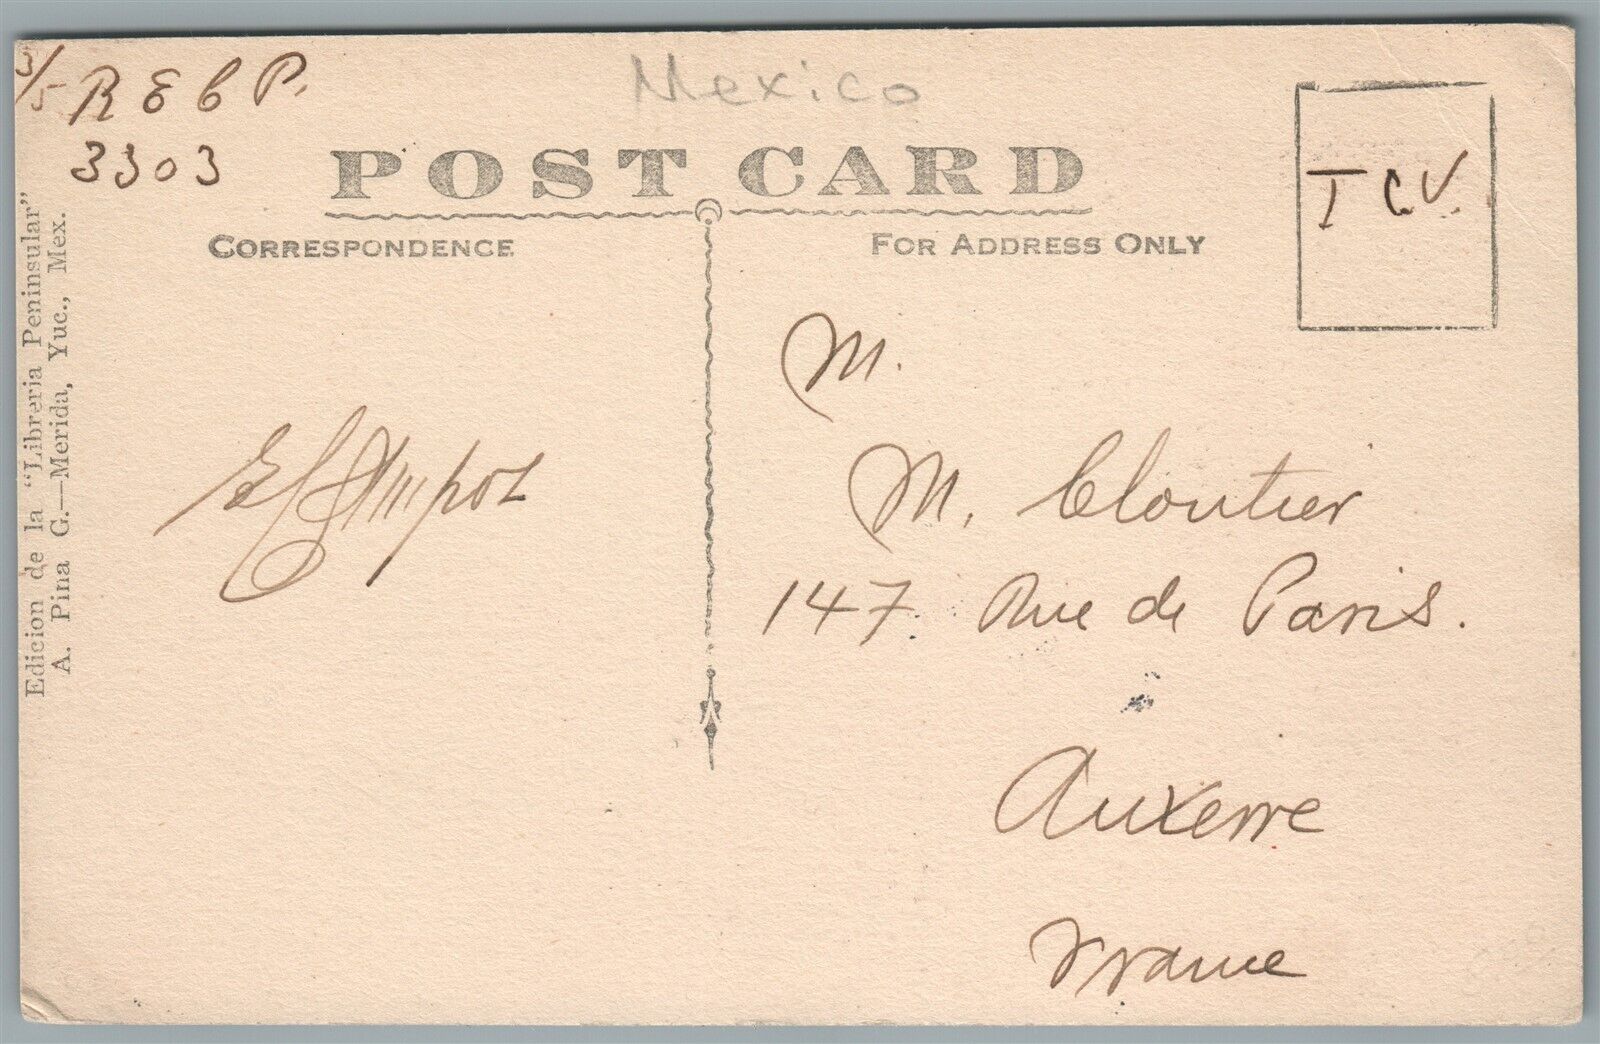 3/5 R E C P.
3303
Mexico
POST CARD
CORRESPONDENCE
FOR ADDRESS ONLY
T C V.
Edicion de la "Libreria Peninsular"
A. Pina G.—Merida, Yuc., Mex.
M.
M. Cloutier
147. Rue de Paris.
Auxerre
France